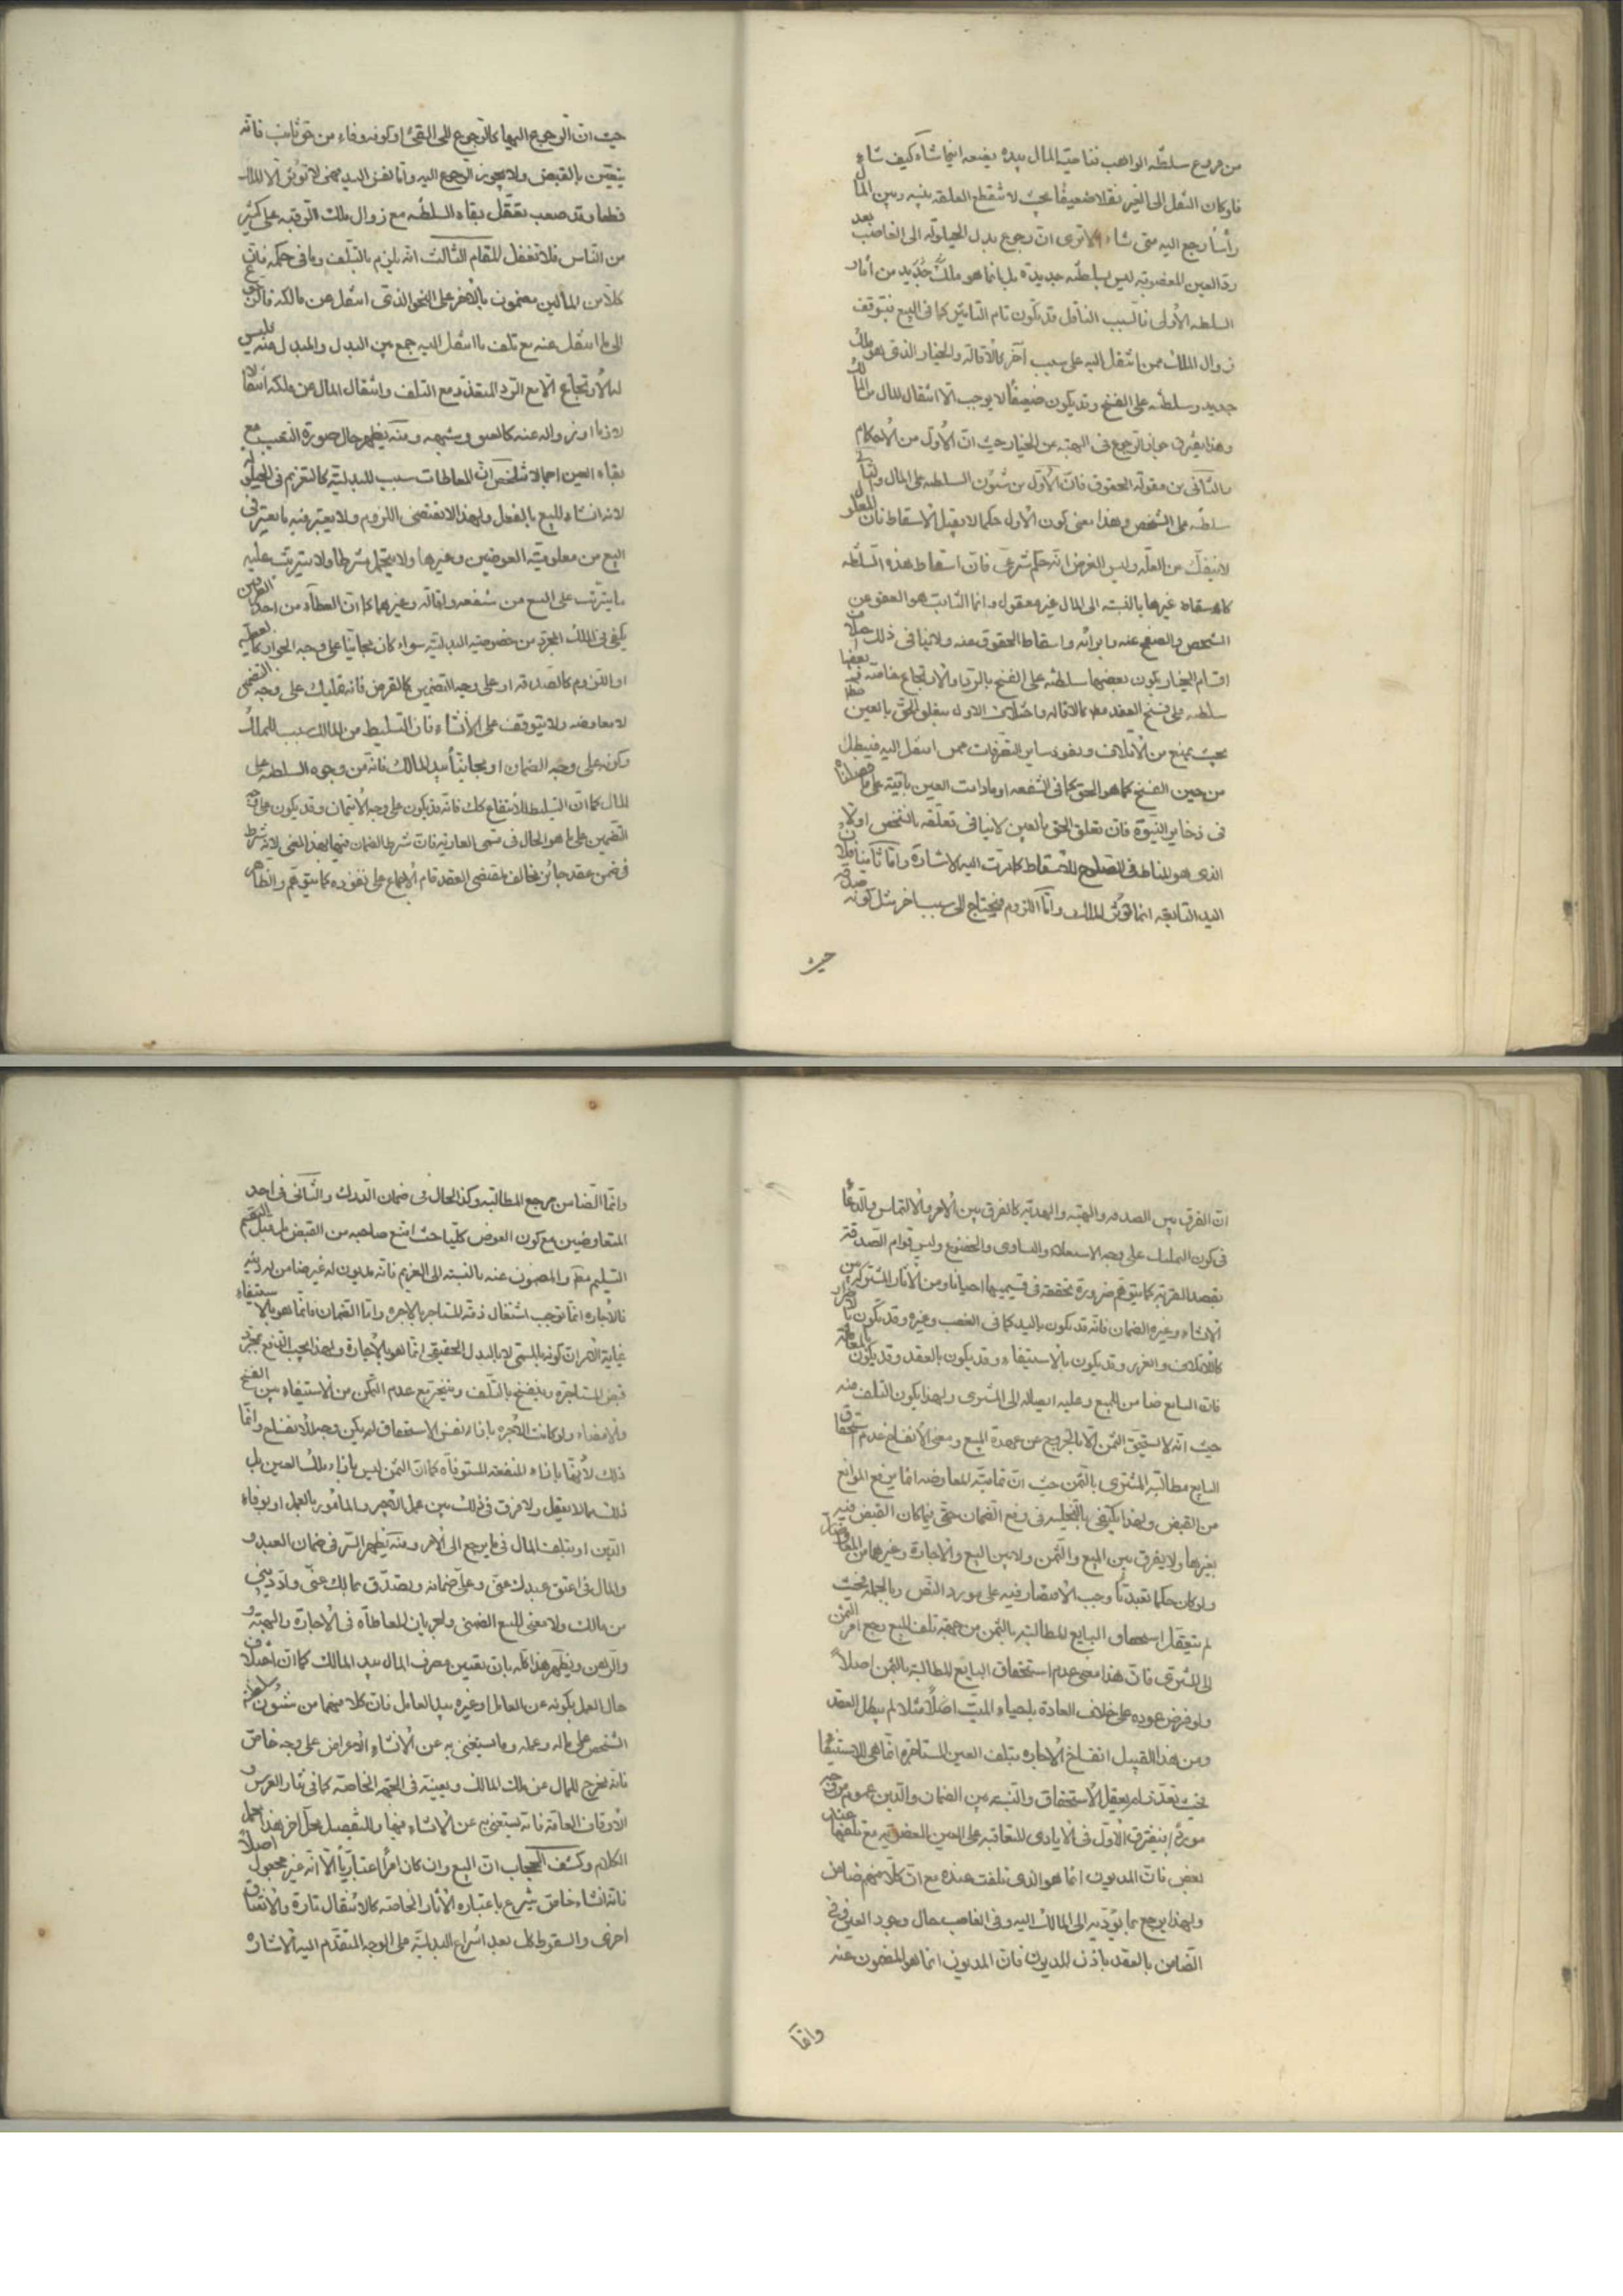 من فروع سلطنه الواهب فناحية المال بيده يضعه اينما شاء كيف شاء
فلو كان النقل الى الغير نقلا ضعيفا بحيث لا تنقطع العلقة بينه وبين المال
رأسا رجع اليه متى شاء الا ترى ان رجوع بدل الحيلولة الى الغاصب بعد
رد العين المغصوبة ليس بسلطنه جديدة بل انما هو ملك جديد من آثار
السلطه الاولى فالسبب الناقل قد يكون تام التاثير كما فى البيع فيتوقف
زوال الملك ممن انتقل اليه على سبب آخر كالاقالة والخيار الذى هو ملك
جديد وسلطنه على الفسخ وقد يكون ضعيفا لا يوجب الا انتقال المال من المالك
وهذا يفترق جواز الرجوع فى الهبة عن الخيار حيث ان الاول من الاحكام
والثانى من مقولة الحقوق فان الاول من شئون السلطنه على المال والثانى
سلطنه على الشخص وهذا معنى كون الاول حكما لا يقبل الاسقاط فان المعلول
لا ينفك عن العلة وليس الغرض انه حكم شرعى فان اسقاط هذه السلطنه
كاسقاط غيرها بالنسبة الى المال غير معقول وانما الثابت هو العفو عن
الشخص والصفح عنه وابرائه واسقاط الحقوق عنه ولا ينافى ذلك اختلاف
اقسام الخيار بكون بعضها سلطنه على الفسخ بالرد والارتجاع خاصة وبعضها
سلطنه على فسخ العقد مطلقا كالاقالة واختلاف الاول بتعلق الحق بالعين
بحيث يمنع من الاتلاف ونفوذ ساير التصرفات ممن انتقل اليه فيبطل
من حين الفسخ كما هو الحق كما فى الشفعه او ما دامت العين باقية على ما فصلناه
فى ذخاير النبوة فان تعلق الحق بالعين لا ينافى تعلقه بالشخص اولا
الذى هو المناط فى الصلوح للاسقاط كما مرت اليه الاشارة واما ثامنا فلان
اليد السابقه انما تؤثر الملك واما اللزوم فيحتاج الى سبب اخر مثل كونه صدقه
حيث
حيث ان الرجوع اليها كالرجوع الى القئ او كونه وفاء من حق ثابت فانه
يتعين بالقبض ولا يجوز الرجوع اليه واما نفس اليد فهى لا تؤثر الا الملك
قطعا وقد صعب تعقل بقاء السلطنه مع زوال ملك الرقبه على كثير
من الناس فلا تغفل المقام الثالث انه يلزم بالتلف وما فى حكمه فان
كلا من المالين مضمون بالاخر على النحو الذى انتقل عن مالكه فالرجوع
الى ما انتقل عنه مع تلف ما انتقل اليه جمع بين البدل والمبدل عنه فليس
له الارتجاع الا مع الرد المتعذر مع التلف وانتقال المال عن ملكه انتقالا
لازما او زواله عنه كالعتق وشبهه ومنه يظهر حال صورة التعيب مع
بقاء العين اجمالا فتلخص ان المعاطات سبب للبدلية كالتغريم فى الحيلولة
لانه انشاء للبيع بالفعل ولهذا لا يقتضى اللزوم ولا يعتبر فيه ما يعتبر فى
البيع من معلومية العوضين وغيرها ولا يتحمل شرطا ولا يترتب عليه
ما يترتب على البيع من شفعه واقالة وغيرهما كما ان العطاء من احد الطرفين
يكفى فى الملك المجرد من خصوصية البدلية سواء كان مجانيا على وجه الجواز كالعطية
او اللزوم كالصدقه او على وجه التضمين كالقرض فانه تمليك على وجه التضمين
لا معاوضه ولا يتوقف على الانشاء فان التسليط من المالك سبب للملك
وكونه على وجه الضمان او مجانيا بيد المالك فانه من وجوه السلطنه على
المال كما ان التسليط للانتفاع كك فانه قد يكون على وجه الايتمان وقد يكون على وجه
التضمين على ما هو الحال فى قسمى العارية فان شرط الضمان فيها بهذا المعنى لا انه شرط
فى ضمن عقد جائز مخالف لمقتضى العقد قام الاجماع على نفوذه كما يتوهم والظاهر
ان الفرق بين الصدقه والهبة والهدية كالفرق بين الامر والالتماس والدعاء
فى كون التمليك على وجه الاستعلاء والتساوى والخضوع وليس قوام الصدقة
بقصد القربة كما يتوهم ضرورة تحققه فى قسيميها احيانا ومن الآثار المشتركة بين
الانشاء وغيره الضمان فانه قد يكون باليد كما فى الغصب وغيره وقد يكون بالاضرار
كالاتلاف والغرور وقد يكون بالاستيفاء وقد يكون بالعقد وقد يكون بالمعاملة
فان البايع ضامن للمبيع وعليه ايصاله الى المشترى ولهذا يكون التلف منه
حيث انه لا يستحق الثمن الا بالخروج عن عهدة المبيع ومعنى الانفساخ عدم استحقاق
البايع مطالبة المشترى بالثمن حيث ان تمامية المعاوضه انما يرفع الموانع
من القبض ولهذا يكتفى بالتخلية فى رفع الضمان حتى فيما كان القبض فيه
بغيرها ولا يفرق بين المبيع والثمن ولا بين البيع والاجارة وغيرهما من المعاوضات
ولو كان حكما تعبديا وجب الاقتصار فيه على مورد النص وبالجملة فحيث
لم يتعقل استحقاق البايع للمطالبة بالثمن من جهة تلف المبيع رجع امر الثمن
الى المشترى فان هذا معنى عدم استحقاق البايع المطالبة بالثمن اصلا
ولو فرض عوده على خلاف العادة باحياء الميت اصلا مثلا لم يبطل العقد
ومن هذا القبيل انفساخ الاجاره بتلف العين المستاجره انما هى للاستيفاء
فحيث تعذر لم يعقل الاستحقاق والنسبة بين الضمان والدين عموم من وجه
موردا يفترق الاول فى الايادى المتعاقبة على العين المغضوبة مع تلفها عند
بعض فان المديون انما هو الذى تلفت عنده مع ان كلا منهم ضامن
ولهذا يرجع بما يؤديه الى المالك اليه وفى الغاصب حال وجود العين وفى
الضامن بالعقد باذن المديون فان المديون انما هو المضمون عنه
وانما
وانما الضامن مرجع المطالبة وكذا الحال فى ضمان الدرك والثانى فى احد
المتعاوضين مع كون العوض كليا حيث امتنع صاحبه من القبض بل قبل التقصير
التسليم مطلقا والمضمون عنه بالنسبة الى الغريم فانه مديون له غير ضامن لدينه
فالاجاره انما توجب اشتغال ذمة المستاجر بالاجره واما الضمان فانما هو بالاستيفاء
غاية الامر ان كونه بالمسمى لا بالبدل الحقيقى انما هو بالاجارة ولهذا يجب الدفع بمجرد
قبض المستاجره وينفسخ بالتلف ويتخير مع عدم التمكن من الاستيفاء بين الفسخ
والامضاء ولو كانت الاجره بازاء نفس الاستحقاق لم يكن وجه للانفساخ وانما
ذلك لانها بازاء المنفعة المستوفاة كما ان الثمن ليس بازاء ملك العين بل
ذلك مما لا يعقل ولا فرق فى ذلك بين عمل الاجير والمامور بالعمل او بوفاء
الدين او بتلف المال فى ما يرجع الى الامر ومنه يظهر السر فى ضمان العبد و
والمال فى اعتق عبدك عنى وعلى ضمانه وتصدق بمالك عنى واد دينى
من مالك ولا معنى للبيع الضمنى ولجريان المعاطاة فى الاجارة والهبة و
والرهن ويظهر هذا كله بان تعيين مصرف المال بيد المالك كما ان اختلاف
حال العمل بكونه عن العامل او غيره بيد العامل فان كلا منهما من شئون سلطنة
الشخص على ماله وعمله ومما يستغنى به عن الانشاء الاعراض على وجه خاص
فانه يخرج المال عن ملك المالك ويعينه فى الجهة الخاصة كما فى نثار العرس و
الاوقاف العامة فانه يستغنى به عن الانشاء فيها وللتفصيل محل آخر هذا مجمل
الكلام وكشف الحجاب ان البيع وان كان امرا اعتباريا الا انه غير مجعول اصلا
فانه انشاء خاص يشرع باعتبار الآثار الخاصه كالانتقال تارة والانعتاق
اخرى والسقوط كل بعد انتزاع البدلية على الوجه المتقدم اليه الاشاره